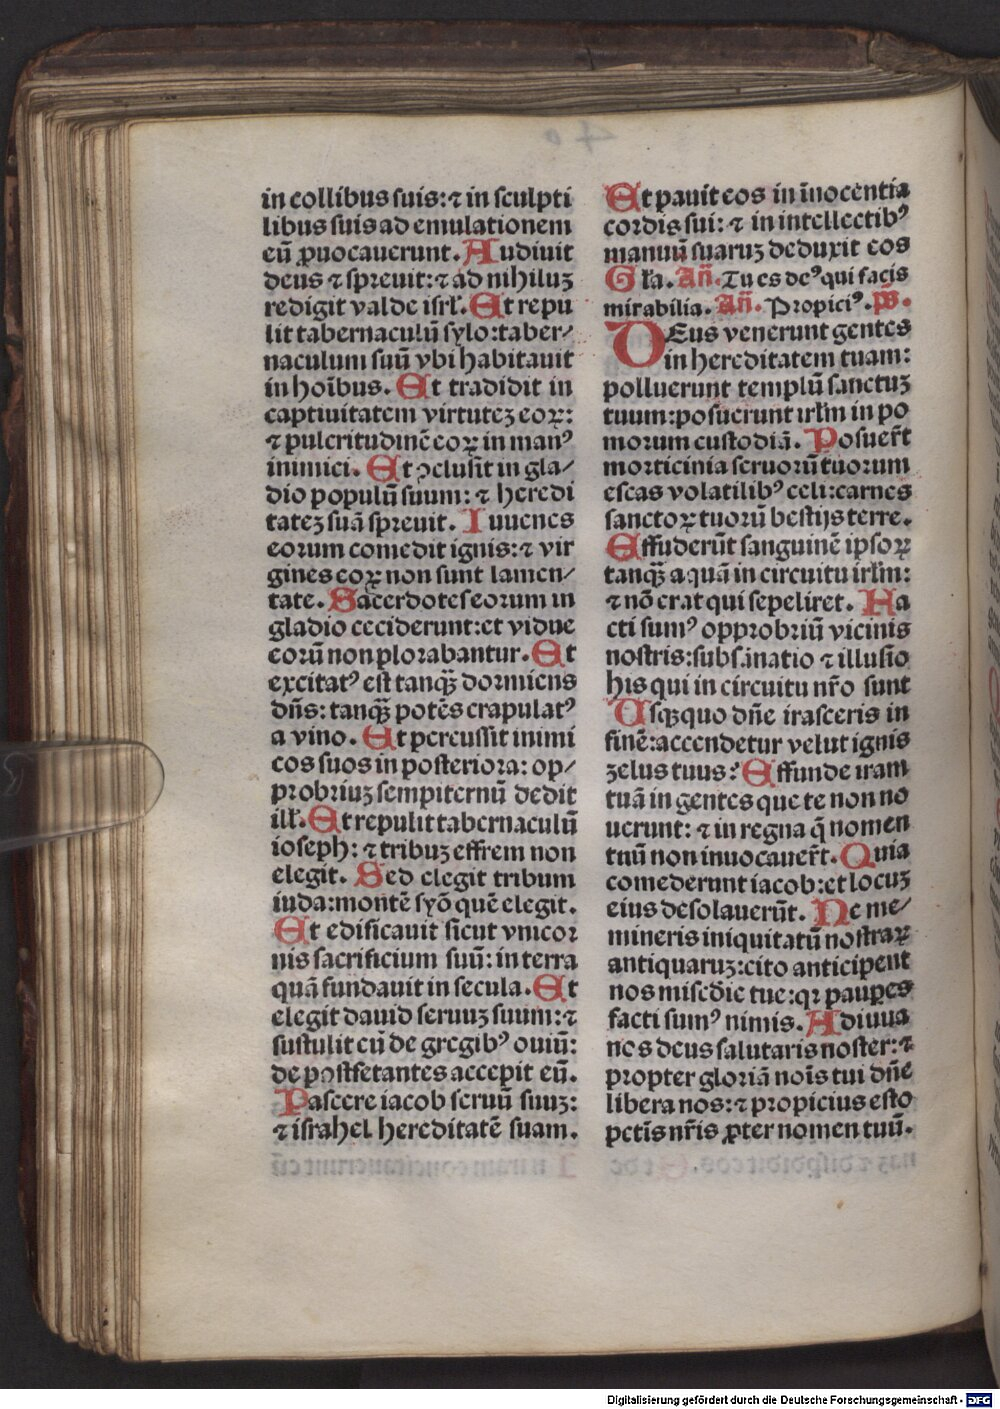 in collibus suis: ⁊ in sculpti
libus suis ad emulationem
eū ꝓuocauerunt. Audiuit
deus ⁊ spreuit: ⁊ ad nihiluꝫ
redigit valde isrl̄. Et repu
lit tabernaculū sylo: taber⸗
naculum suū vbi habitauit
in hoībus. Et tradidit in
captiuitatem virtuteꝫ eoꝝ:
⁊ pulcritudinē eoꝝ in manꝰ
inimici. Et ꝯclusit in gla⸗
dio populū suum: ⁊ heredi
tateꝫ suā spreuit. Iuuenes
eorum comedit ignis: ⁊ vir
gines eoꝝ non sunt lamen⸗
tate. Sacerdotes eorum in
gladio ceciderunt: et vidue
eorū non plorabantur. Et
excitatꝰ est tanqꝫ dormiens
dn̄s: tanqꝫ potēs crapulatꝰ
a vino. Et percussit inimi
cos suos in posteriora: op⸗
probriuꝫ sempiternū dedit
ill̄. Et repulit tabernaculū
ioseph: ⁊ tribuꝫ effrem non
elegit. Sed elegit tribum
iuda: montē syō quē elegit.
Et edificauit sicut vnicor
nis sacrificium suū: in terra
quā fundauit in secula. Et
elegit dauid seruuꝫ suum: ⁊
sustulit eū de gregibꝰ ouiū:
de postfetantes accepit eū.
Pascere iacob seruū suuꝫ:
⁊ israhel hereditatē suam.
Et pauit eos in īnocentia
cordis sui: ⁊ in intellectibꝰ
manuū suaruꝫ deduxit eos
Gl̄a. Añ. Tu es deꝰ qui facis
mirabilia. Añ. Propiciꝰ. p̄s.
DEus venerunt gentes
in hereditatem tuam:
polluerunt templū sanctuꝫ
tuum: posuerunt irl̄m in po
morum custodiā. Posuer̄t
morticinia seruorū tuorum
escas volatilibꝰ celi: carnes
sanctoꝝ tuorū bestijs terre.
Effuderūt sanguinē ipsoꝝ
tanqꝫ aquā in circuitu irl̄m:
⁊ nō erat qui sepeliret. Fa
cti sumꝰ opprobriū vicinis
nostris: subsānatio ⁊ illusio
his qui in circuitu nr̄o sunt
Usqꝫquo dn̄e irasceris in
finē: accendetur velut ignis
zelus tuus? Effunde iram
tuā in gentes que te non no
uerunt: ⁊ in regna q̄ nomen
tuū non inuocauer̄t. Quia
comederunt iacob: et locuꝫ
eius desolauerūt. Ne me⸗
mineris iniquitatū nostraꝝ
antiquaruꝫ: cito anticipent
nos misēdie tue: qꝛ paupes
facti sumꝰ nimis. Adiuua
nos deus salutaris noster: ⁊
propter gloriā noīs tui dn̄e
libera nos: ⁊ propicius esto
petīs nr̄is ꝓpter nomen tuū.
Digitalisierung gefördert durch die Deutsche Forschungsgemeinschaft - DFG